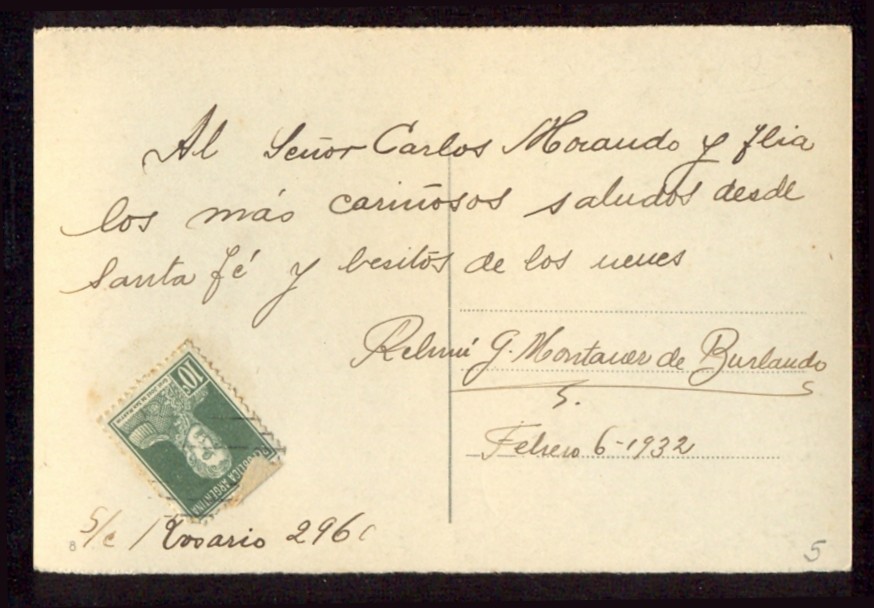 Al Señor Carlos Morando y flia
los más cariñosos saludos desde
Santa fé y besitos de los nenes
G. Montaner de Burlando
Febrero 6-1932
10¢
REPUBLICA ARGENTINA
S/c Rosario 296
8
5